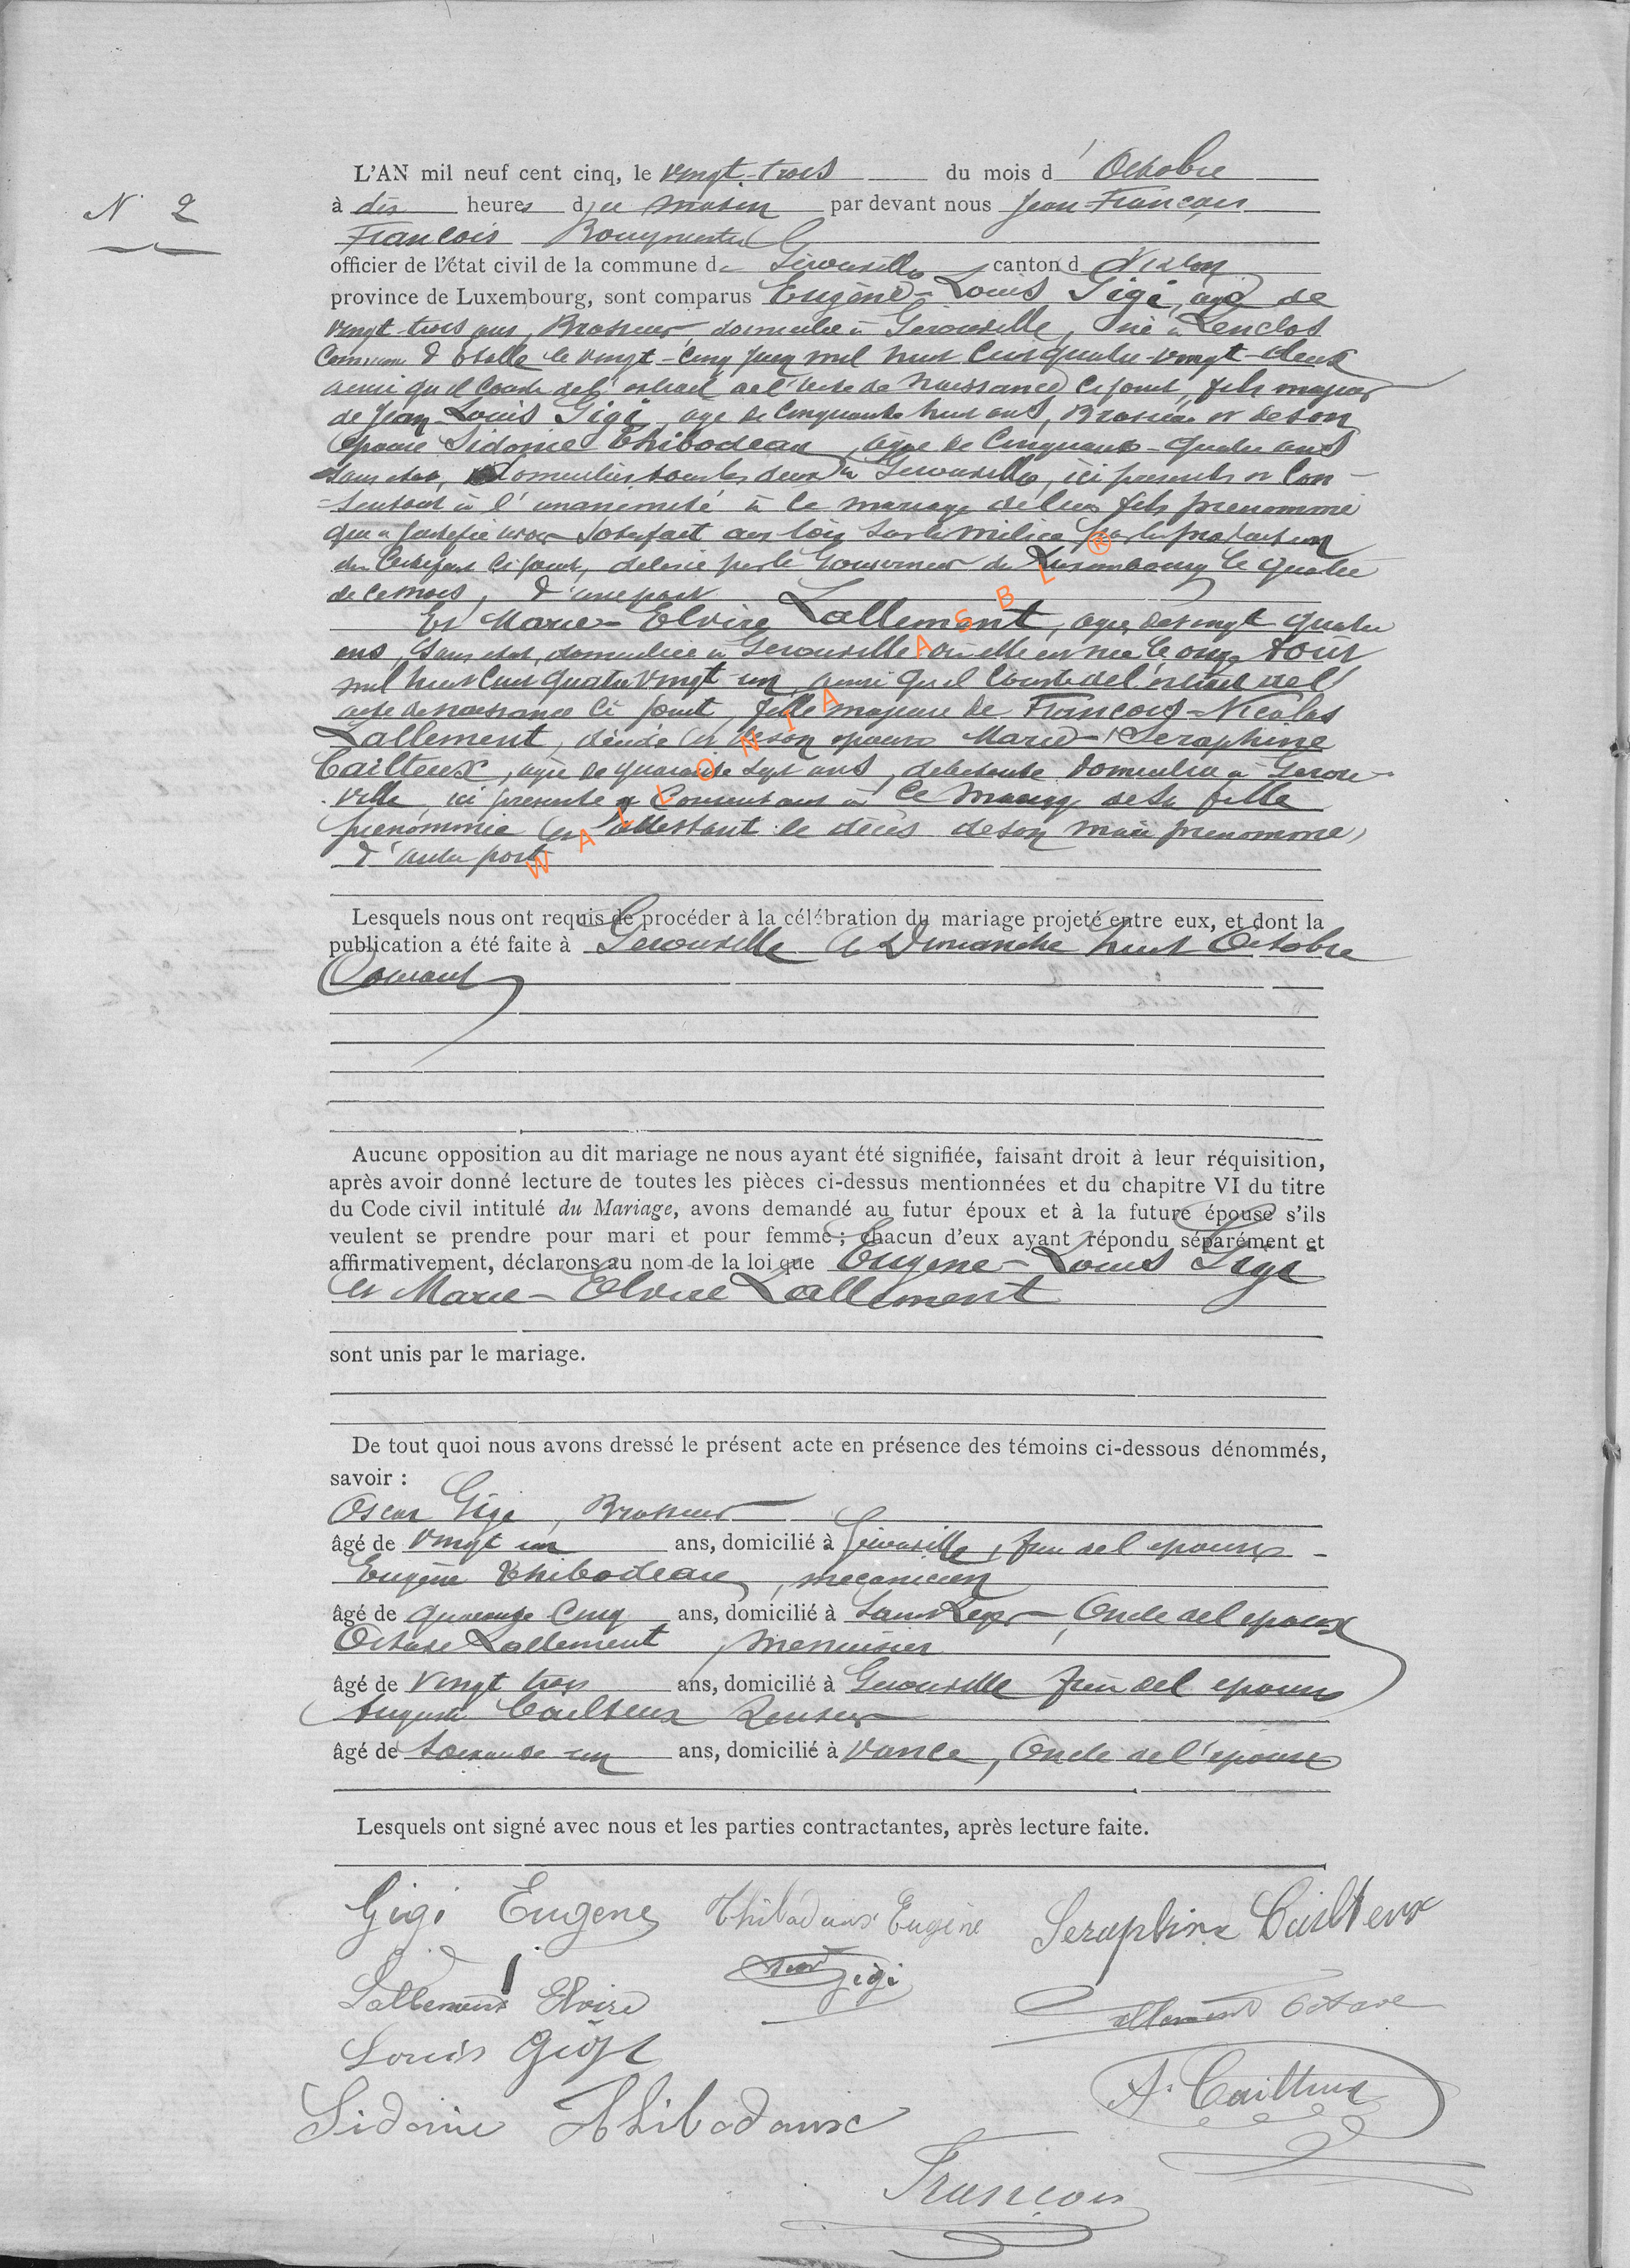 L'AN mil neuf cent cinq, le vingt-trois du mois d' Octobre
N° 2
à dix heures du matin par devant nous Jean-François
François Bourgmestre
officier de l'état civil de la commune de Gérouville canton d Virton
province de Luxembourg, sont comparus Eugène-Louis Gigi, âgé de
vingt-trois ans, Brasseur, domicilié à Gérouville, né à Lenclos
Commune d'Etalle le vingt-cinq juin mil huit cent quatre-vingt-deux
ainsi qu'il conste de l'extrait de l'acte de naissance ci joint, fils majeur
de Jean-Louis Gigi, âgé de cinquante huit ans, Brasseur et de son
épouse Sidonie Thibodeau, âgée de cinquante-quatre ans
sans état, domiciliés tous les deux à Gérouville, ici présents et con-
-sentant à l'unanimité à ce mariage de leur fils prénommé
qui a justifié avoir satisfait aux lois sur la milice par la production
du certificat ci joint, délivré par le Gouverneur du Luxembourg le quatre
de ce mois, d'une part
Et Marie-Elvire Lallement, âgée de vingt quatre
ans, sans état, domiciliée à Gérouville où elle est née le onze Août
mil huit cent quatre vingt-un, ainsi qu'il conste de l'extrait de l'
acte de naissance ci joint, fille majeure de François-Nicolas
Lallement, décédé et de son épouse Marie-Seraphine
Cailteux, âgée de quarante sept ans, débitante domiciliée à Gérou-
ville, ici présente et consentant à ce mariage de sa fille
prénommée et attestant le décès de son mari prénommé,
d'autre part
WALLONIA ASBL ®
Lesquels nous ont requis de procéder à la célébration du mariage projeté entre eux, et dont la
publication a été faite à Gérouville le Dimanche huit Octobre
Courant
Aucune opposition au dit mariage ne nous ayant été signifiée, faisant droit à leur réquisition,
après avoir donné lecture de toutes les pièces ci-dessus mentionnées et du chapitre VI du titre
du Code civil intitulé du Mariage, avons demandé au futur époux et à la future épouse s'ils
veulent se prendre pour mari et pour femme ; chacun d'eux ayant répondu séparément et
affirmativement, déclarons au nom de la loi que Eugène-Louis Gigi
et Marie-Elvire Lallement
sont unis par le mariage.
De tout quoi nous avons dressé le présent acte en présence des témoins ci-dessous dénommés,
savoir :
Oscar Gigi, Brasseur
âgé de vingt un ans, domicilié à Gérouville, frère de l'époux
Eugène Thibodeau, mécanicien
âgé de quarante cinq ans, domicilié à Saint Léger, Oncle de l'époux
Octave Lallement, menuisier
âgé de vingt trois ans, domicilié à Gérouville frère de l'épouse
Auguste Cailteux Rentier
âgé de soixante un ans, domicilié à Vance, Oncle de l'épouse
Lesquels ont signé avec nous et les parties contractantes, après lecture faite.
Gigi Eugène Thibodaux Eugène Seraphine Cailteux
Gigi
Lallement Elvire Lallement Octave
Louis Gigi
A. Cailteux
Sidonie Thibodaux
François